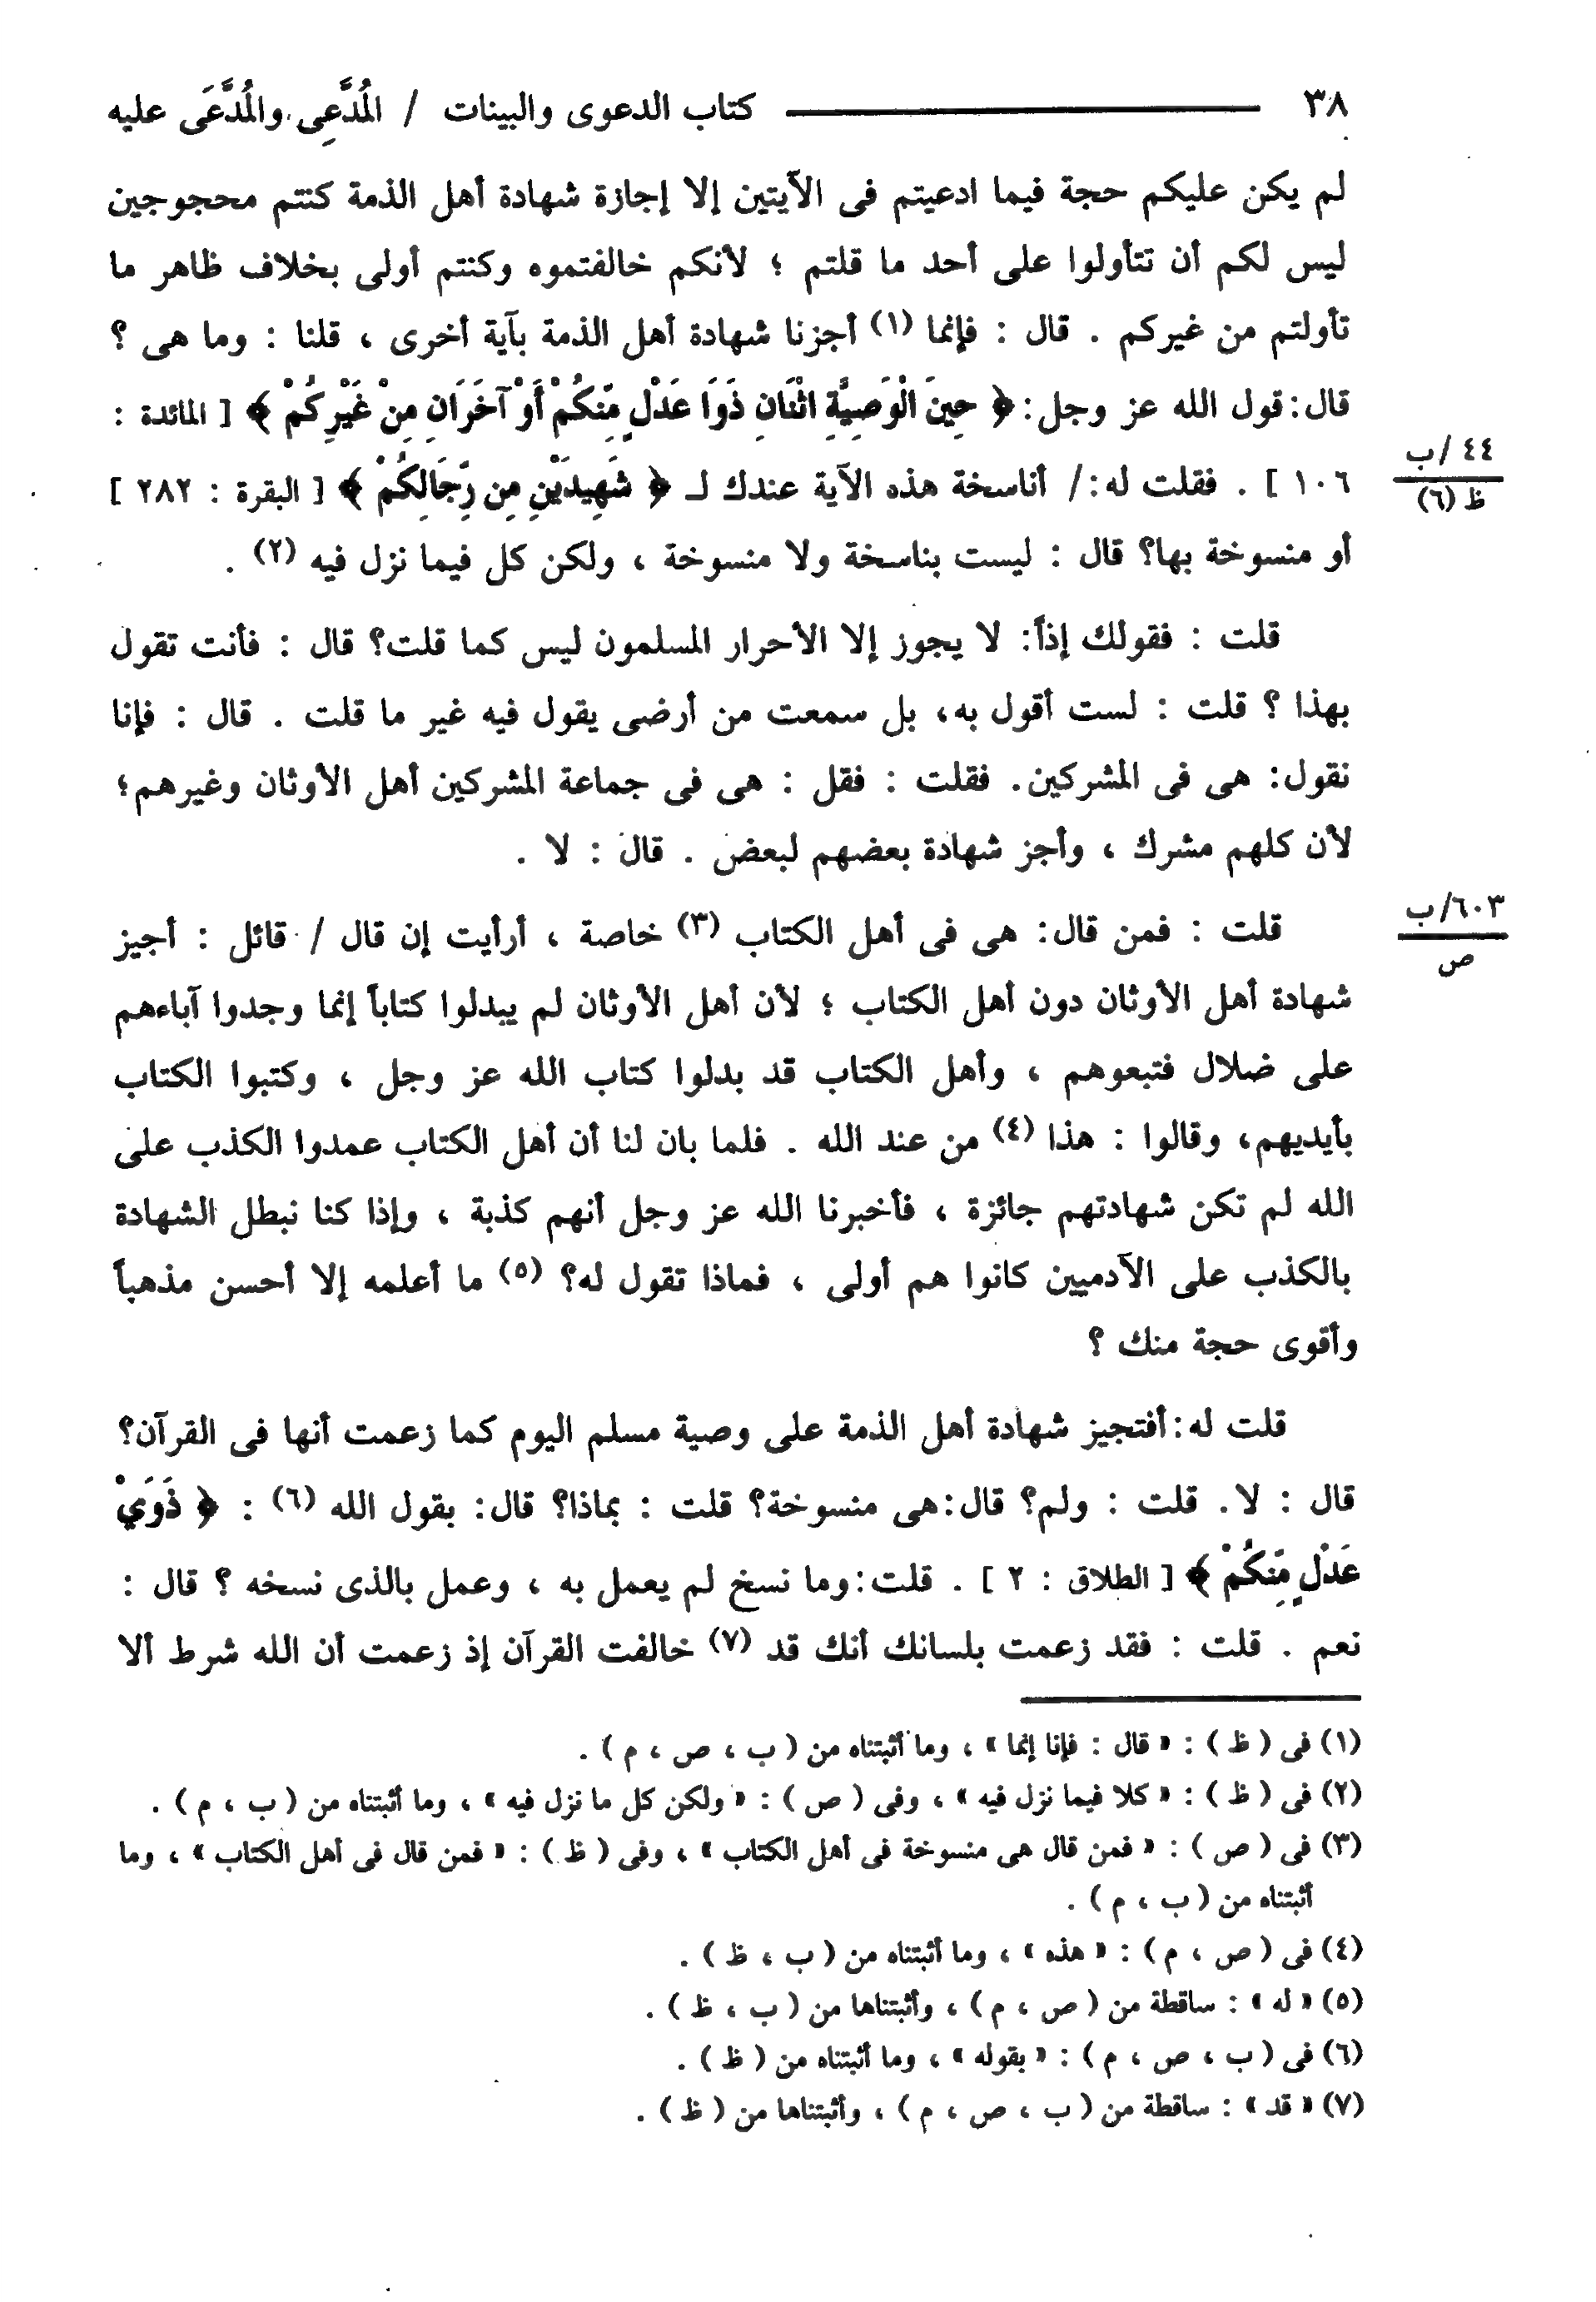 ٣٨ كتاب الدعوى والبينات / المُدَّعِى والمُدَّعَى عليه
لم يكن عليكم حجة فيما ادعيتم فى الآيتين إلا إجازة شهادة أهل الذمة كنتم محجوجين
ليس لكم أن تتأولوا على أحد ما قلتم ؛ لأنكم خالفتموه وكنتم أولى بخلاف ظاهر ما
تأولتم من غيركم . قال : فإنما (١) أجزنا شهادة أهل الذمة بآية أخرى ، قلنا : وما هى ؟
قال: قول الله عز وجل: ﴿ حِينَ الْوَصِيَّةِ اثْنَانِ ذَوَا عَدْلٍ مِّنكُمْ أَوْ آخَرَانِ مِنْ غَيْرِكُمْ ﴾ [ المائدة :
١٠٦ ] . فقلت له: / أناسخة هذه الآية عندك لـ ﴿ شَهِيدَيْنِ مِن رِّجَالِكُمْ ﴾ [ البقرة : ٢٨٢ ]
٤٤ /ب
ظ (٦)
أو منسوخة بها؟ قال : ليست بناسخة ولا منسوخة ، ولكن كل فيما نزل فيه (٢) .
قلت : فقولك إذاً: لا يجوز إلا الأحرار المسلمون ليس كما قلت؟ قال : فأنت تقول
بهذا ؟ قلت : لست أقول به، بل سمعت من أرضى يقول فيه غير ما قلت . قال : فإنا
نقول: هى فى المشركين. فقلت : فقل : هى فى جماعة المشركين أهل الأوثان وغيرهم؛
لأن كلهم مشرك ، وأجز شهادة بعضهم لبعض . قال : لا .
قلت : فمن قال: هى فى أهل الكتاب (٣) خاصة ، أرأيت إن قال / قائل : أجيز
٦٠٣/ب
ص
شهادة أهل الأوثان دون أهل الكتاب ؛ لأن أهل الأوثان لم يبدلوا كتاباً إنما وجدوا آباءهم
على ضلال فتبعوهم ، وأهل الكتاب قد بدلوا كتاب الله عز وجل ، وكتبوا الكتاب
بأيديهم، وقالوا : هذا (٤) من عند الله . فلما بان لنا أن أهل الكتاب عمدوا الكذب على
الله لم تكن شهادتهم جائزة ، فأخبرنا الله عز وجل أنهم كذبة ، وإذا كنا نبطل الشهادة
بالكذب على الآدميين كانوا هم أولى ، فماذا تقول له؟ (٥) ما أعلمه إلا أحسن مذهباً
وأقوى حجة منك ؟
قلت له: أفتجيز شهادة أهل الذمة على وصية مسلم اليوم كما زعمت أنها فى القرآن؟
قال : لا. قلت : ولم؟ قال: هى منسوخة؟ قلت : بماذا؟ قال: بقول الله (٦) : ﴿ ذَوَيْ
عَدْلٍ مِّنكُمْ ﴾ [ الطلاق : ٢ ] . قلت: وما نسخ لم يعمل به ، وعمل بالذى نسخه ؟ قال :
نعم . قلت : فقد زعمت بلسانك أنك قد (٧) خالفت القرآن إذ زعمت أن الله شرط ألا
(١) فى ( ظ ) : « قال : فإنا إنما » ، وما أثبتناه من ( ب ، ص ، م ) .
(٢) فى ( ظ ) : « كلا فيما نزل فيه » ، وفى ( ص ) : « ولكن كل ما نزل فيه » ، وما أثبتناه من ( ب ، م ) .
(٣) فى ( ص ) : « فمن قال هى منسوخة فى أهل الكتاب » ، وفى ( ظ ) : « فمن قال فى أهل الكتاب » ، وما
أثبتناه من ( ب ، م ) .
(٤) فى ( ص ، م ) : « هذه » ، وما أثبتناه من ( ب ، ظ ) .
(٥) « له » : ساقطة من ( ص ، م ) ، وأثبتناها من ( ب ، ظ ) .
(٦) فى ( ب ، ص ، م ) : « بقوله » ، وما أثبتناه من ( ظ ) .
(٧) « قد » : ساقطة من ( ب ، ص ، م ) ، وأثبتناها من ( ظ ) .